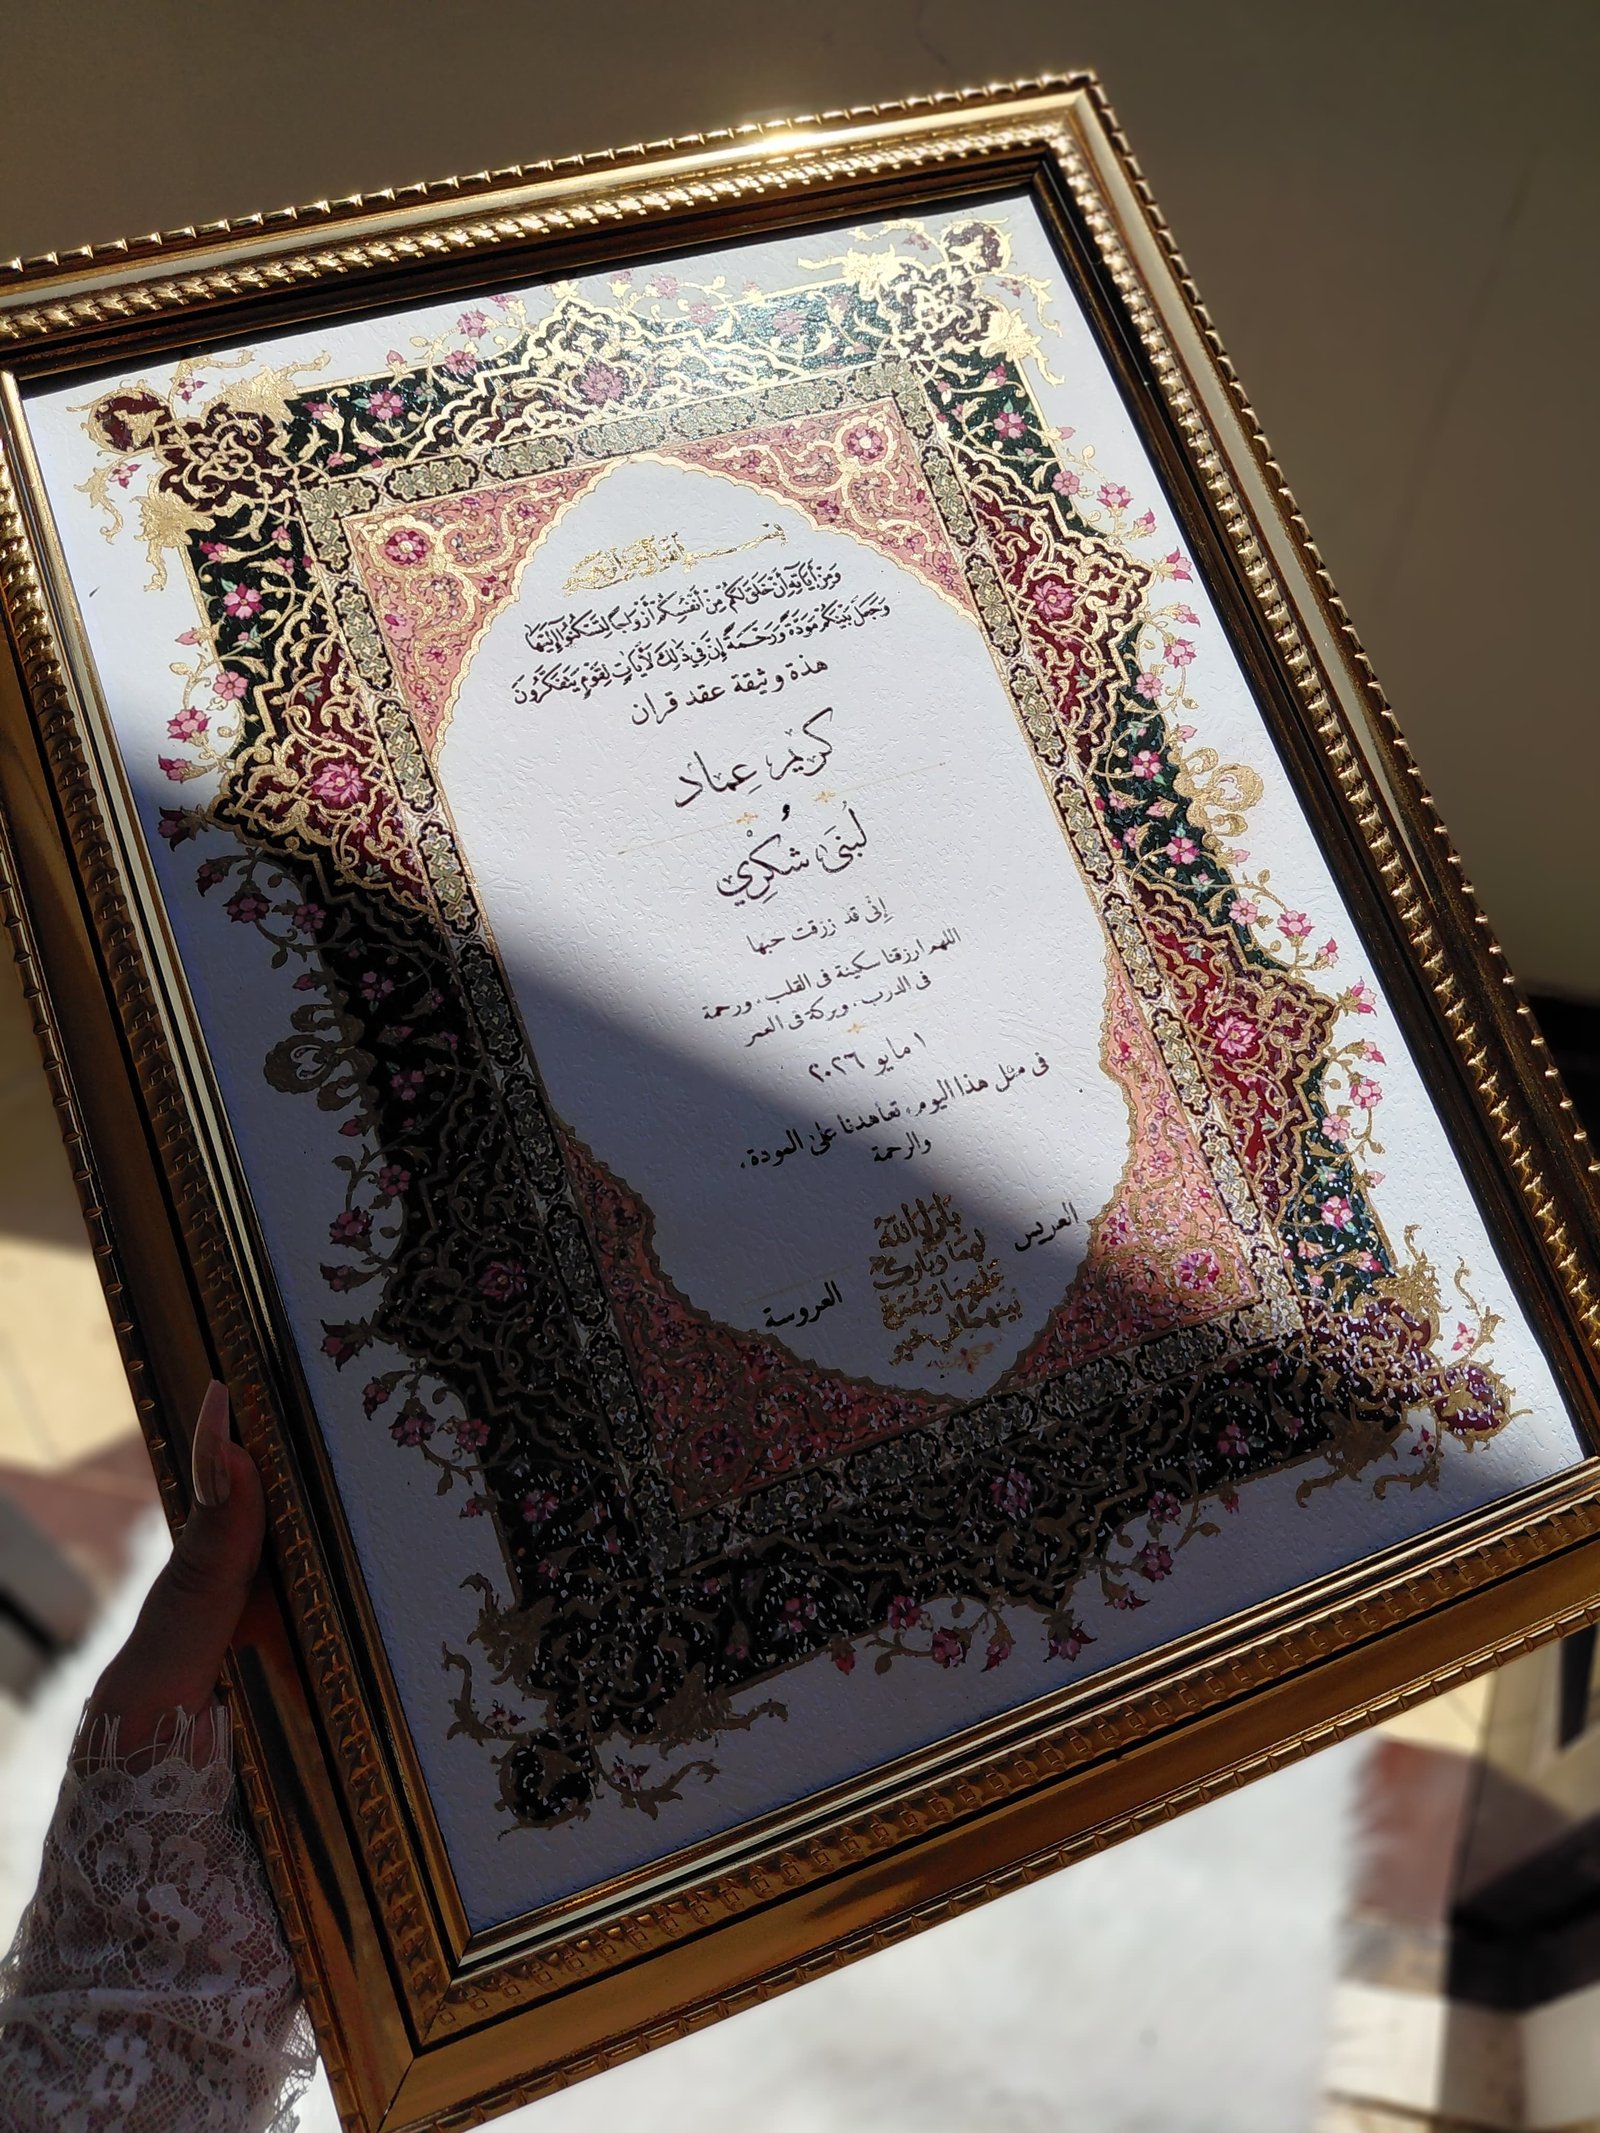 بسم الله الرحمن الرحيم
وَمِنْ أَيَاتِهِ أَنْ خَلَقَ لَكُمْ مِنْ أَنْفُسِكُمْ أَزْوَاجًا لِتَسْكُنُوا إِلَيْهَا
وَجَعَلَ بَيْنَكُمْ مَوَدَّةً وَرَحْمَةً إِنَّ فِي ذَلِكَ لَآيَاتٍ لِقَوْمٍ يَتَفَكَّرُونَ
هذه وثيقة عقد قران
كريم عِماد
لُبنَى شُكْرِي
إنِّي قد رزقت حبها
اللهم ارزقنا سكينة في القلب، ورحمة
في الدرب، وبركة في العمر
١ مايو ٢٠٢٦
في مثل هذا اليوم، تعاهدنا على المودة،
والرحمة
العريس
بَارَكَ اللهُ
لَهُمَا وَبَارَكَ
عَلَيْهِمَا وَجَمَعَ
بَيْنَهُمَا فِي خَيْرٍ
العروسة